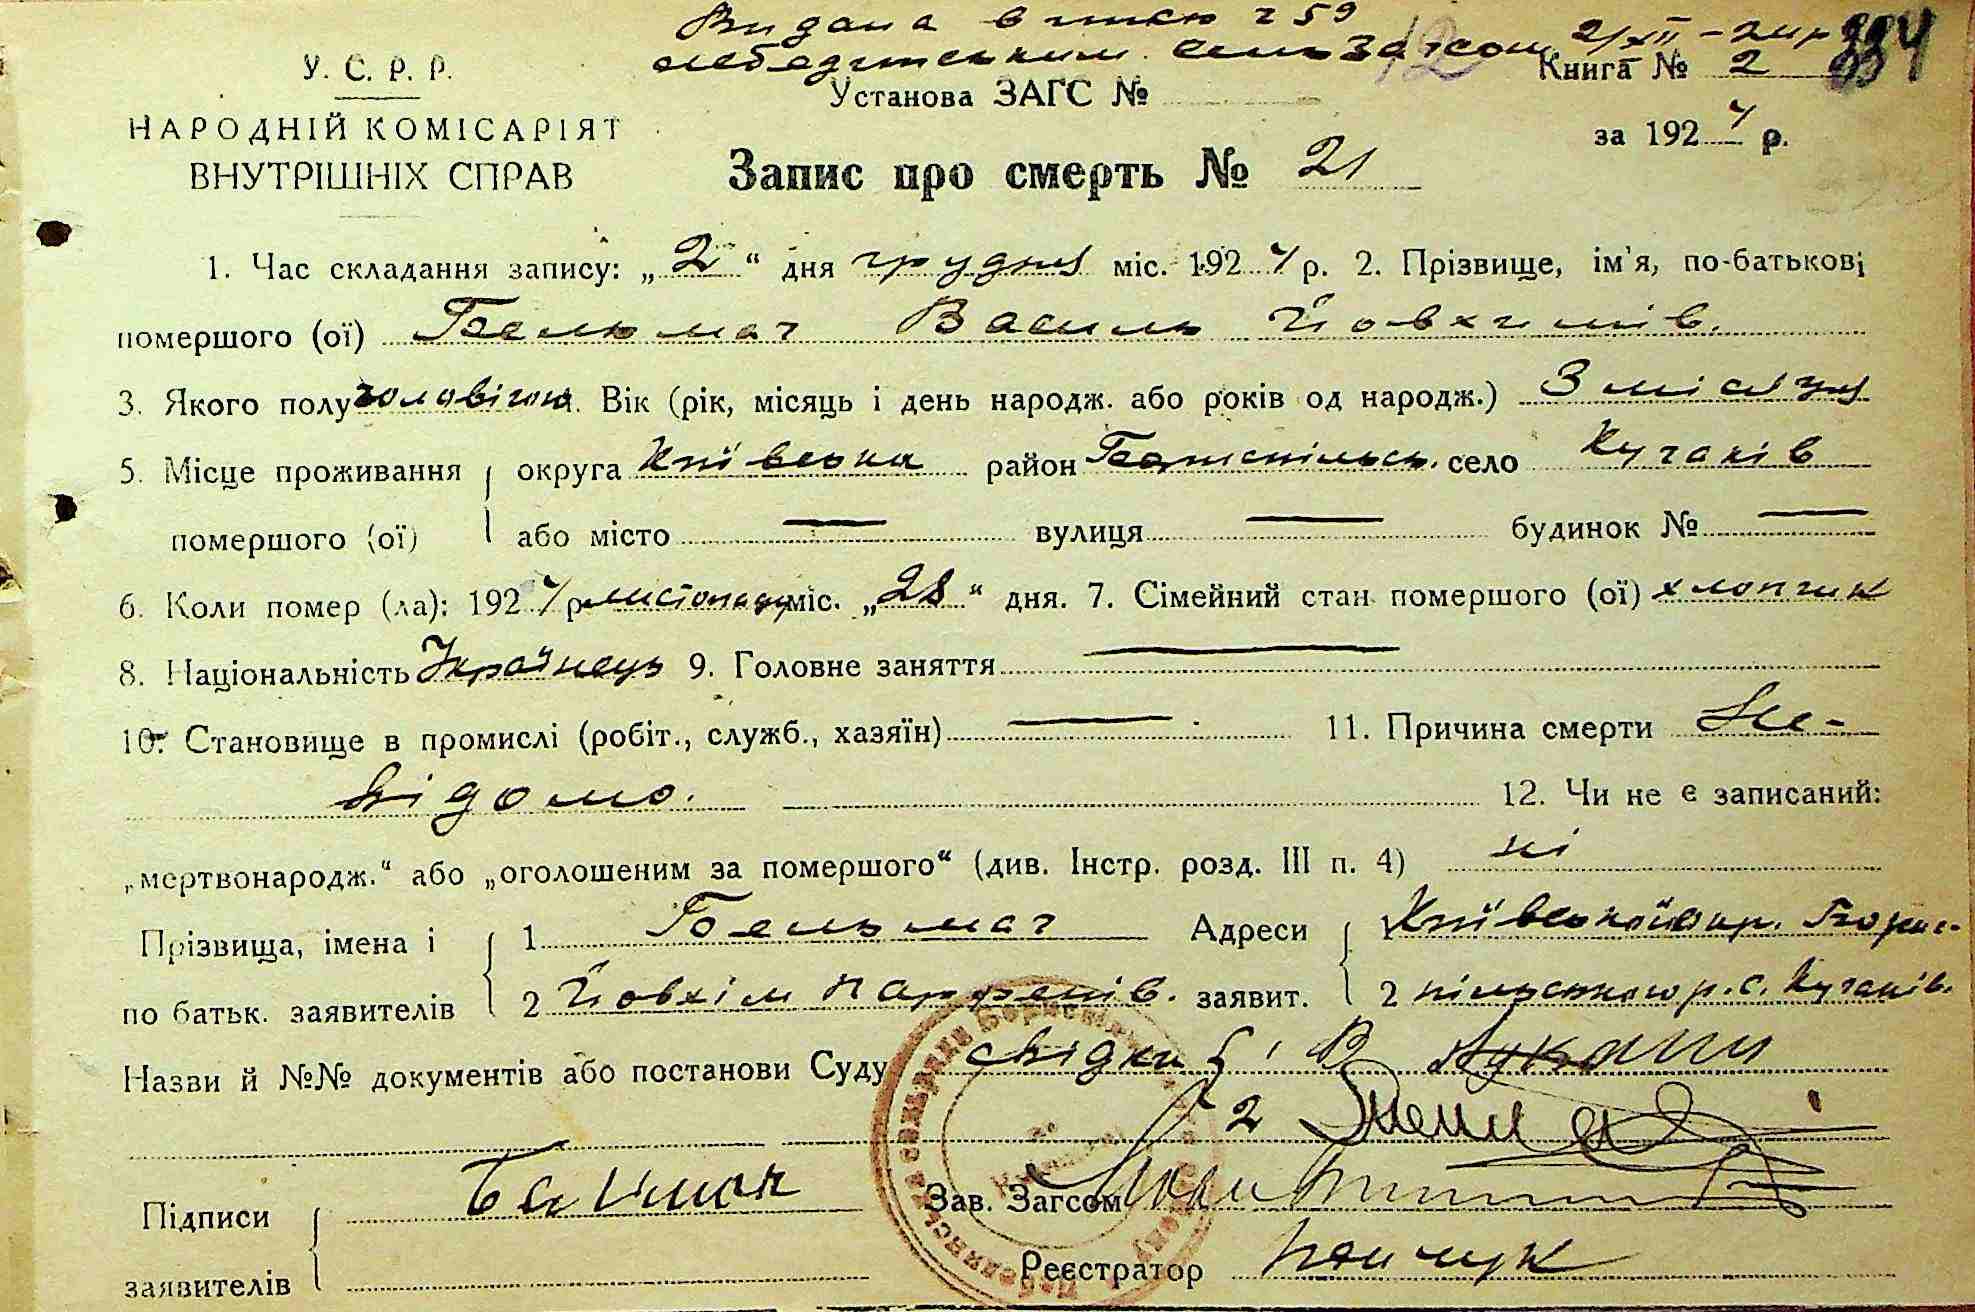 Видана випис ч 59 2/XII – 24 р 334
лебединським сель Загсом
У. С. Р. Р.
НАРОДНІЙ КОМІСАРІЯТ
ВНУТРІШНІХ СПРАВ
Установа ЗАГС №
Книга № 2
за 1924 р.
Запис про смерть № 21
1. Час складання запису: „2“ дня грудня міс. 1924 р. 2. Прізвище, ім'я, по-батькові
помершого (ої) Бельмач Василь Йовхимів.
3. Якого полу чоловічого. Вік (рік, місяць і день народж. або років од народж.) 3 місяця
5. Місце проживання округа Київська район Бориспільськ. село Кучаків
помершого (ої) або місто — вулиця — будинок № —
6. Коли помер (ла): 1924 р листопаду міс. „28“ дня. 7. Сімейний стан помершого (ої) хлопчик
8. Національність Українець 9. Головне заняття —
10. Становище в промислі (робіт., служб., хазяїн) — 11. Причина смерти Не-
відомо. 12. Чи не є записаний:
„мертвонародж.“ або „оголошеним за помершого“ (див. Інстр. розд. III п. 4) ні
Прізвища, імена і 1 Бельмач Адреси 1 Київської окр. Борис-
по батьк. заявителів 2 Йовхім Парфенів. заявит. 2 пільського р. с. Кучаків.
Назви й №№ документів або постанови Суду свідки 1 В Лукаш
2
Підписи Зав. Загсом
заявителів Реєстратор